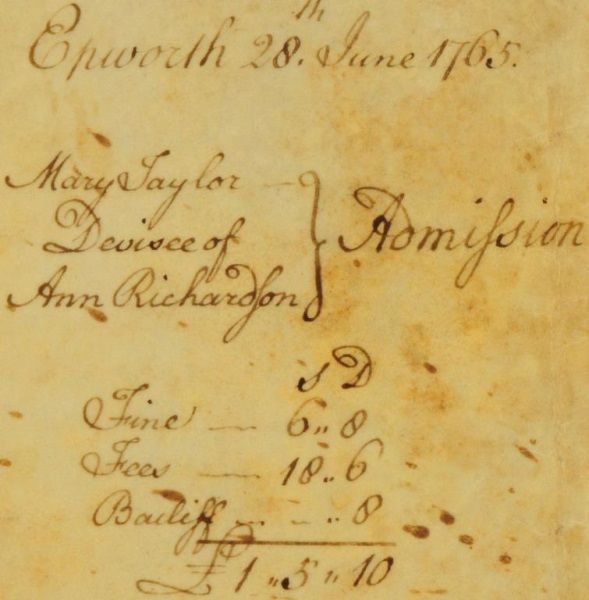 Epworth 28.th June 1765.
Mary Taylor —
Devisee of
Ann Richardson } Admiſsion
s D
Fine — 6 „ 8
Fees — 18 „ 6
Bailiff — - „ 8
£ 1 „ 5 „ 10